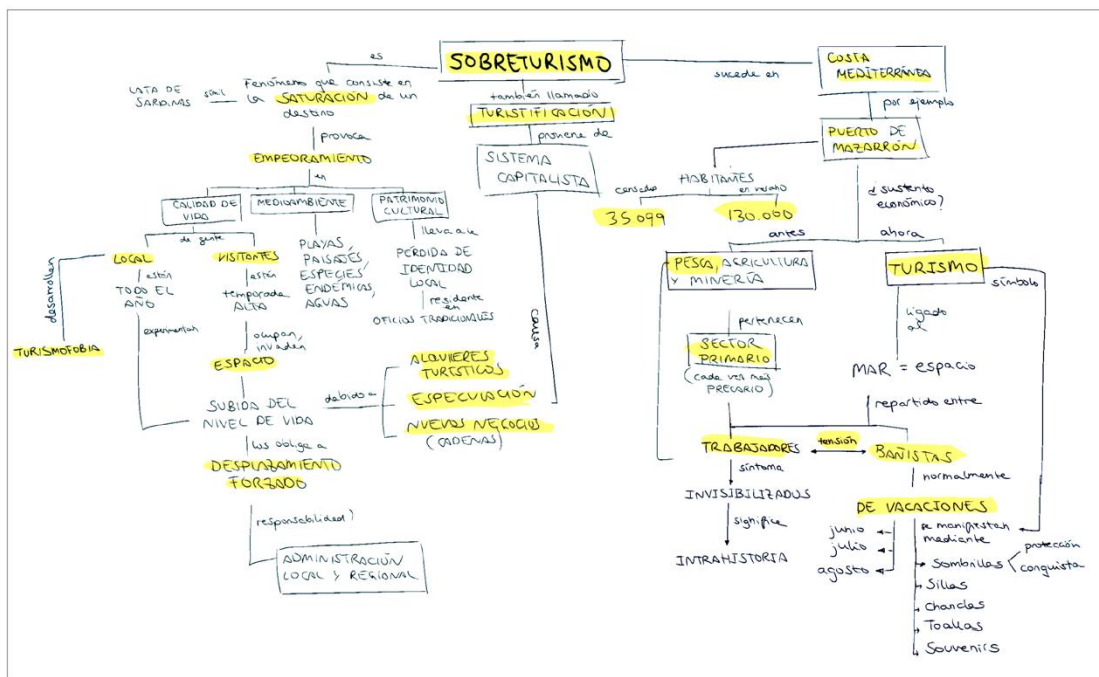 SOBRETURISMO
es
LATA DE
SARDINAS
símil
Fenómeno que consiste en
la SATURACIÓN de un
destino
provoca
EMPEORAMIENTO
en
CALIDAD DE
VIDA
MEDIOAMBIENTE
PATRIMONIO
CULTURAL
de gente
LOCAL
VISITANTES
desarrollan
TURISMOFOBIA
están
TODO EL
AÑO
experimentan
están
temporada
ALTA
ocupan,
invaden
ESPACIO
PLAYAS,
PAISAJES,
ESPECIES
ENDÉMICAS,
AGUAS
lleva a la
PÉRDIDA DE
IDENTIDAD
LOCAL
residente
en
OFICIOS TRADICIONALES
SUBIDA DEL
NIVEL DE VIDA
debido a
ALQUILERES
TURÍSTICOS
ESPECULACIÓN
NUEVOS NEGOCIOS
(CADENAS)
los obliga a
DESPLAZAMIENTO
FORZADO
responsabilidad?
ADMINISTRACIÓN
LOCAL Y REGIONAL
también llamado
TURISTIFICACIÓN
proviene de
SISTEMA
CAPITALISTA
causa
sucede en
COSTA
MEDITERRÁNEA
por ejemplo
PUERTO DE
MAZARRÓN
HABITANTES
censados
35099
en verano
130.000
¿sustento
económico?
antes
ahora
PESCA, AGRICULTURA
Y MINERÍA
TURISMO
símbolo
pertenecen
SECTOR
PRIMARIO
(cada vez más
PRECARIO)
ligado
al
MAR = espacio
repartido entre
TRABAJADORES
tensión
BAÑISTAS
síntoma
INVISIBILIZADOS
significa
INTRAHISTORIA
normalmente
DE VACACIONES
junio
julio
agosto
se manifiestan
mediante
Sombrillas
protección
conquista
Sillas
Chanclas
Toallas
Souvenirs